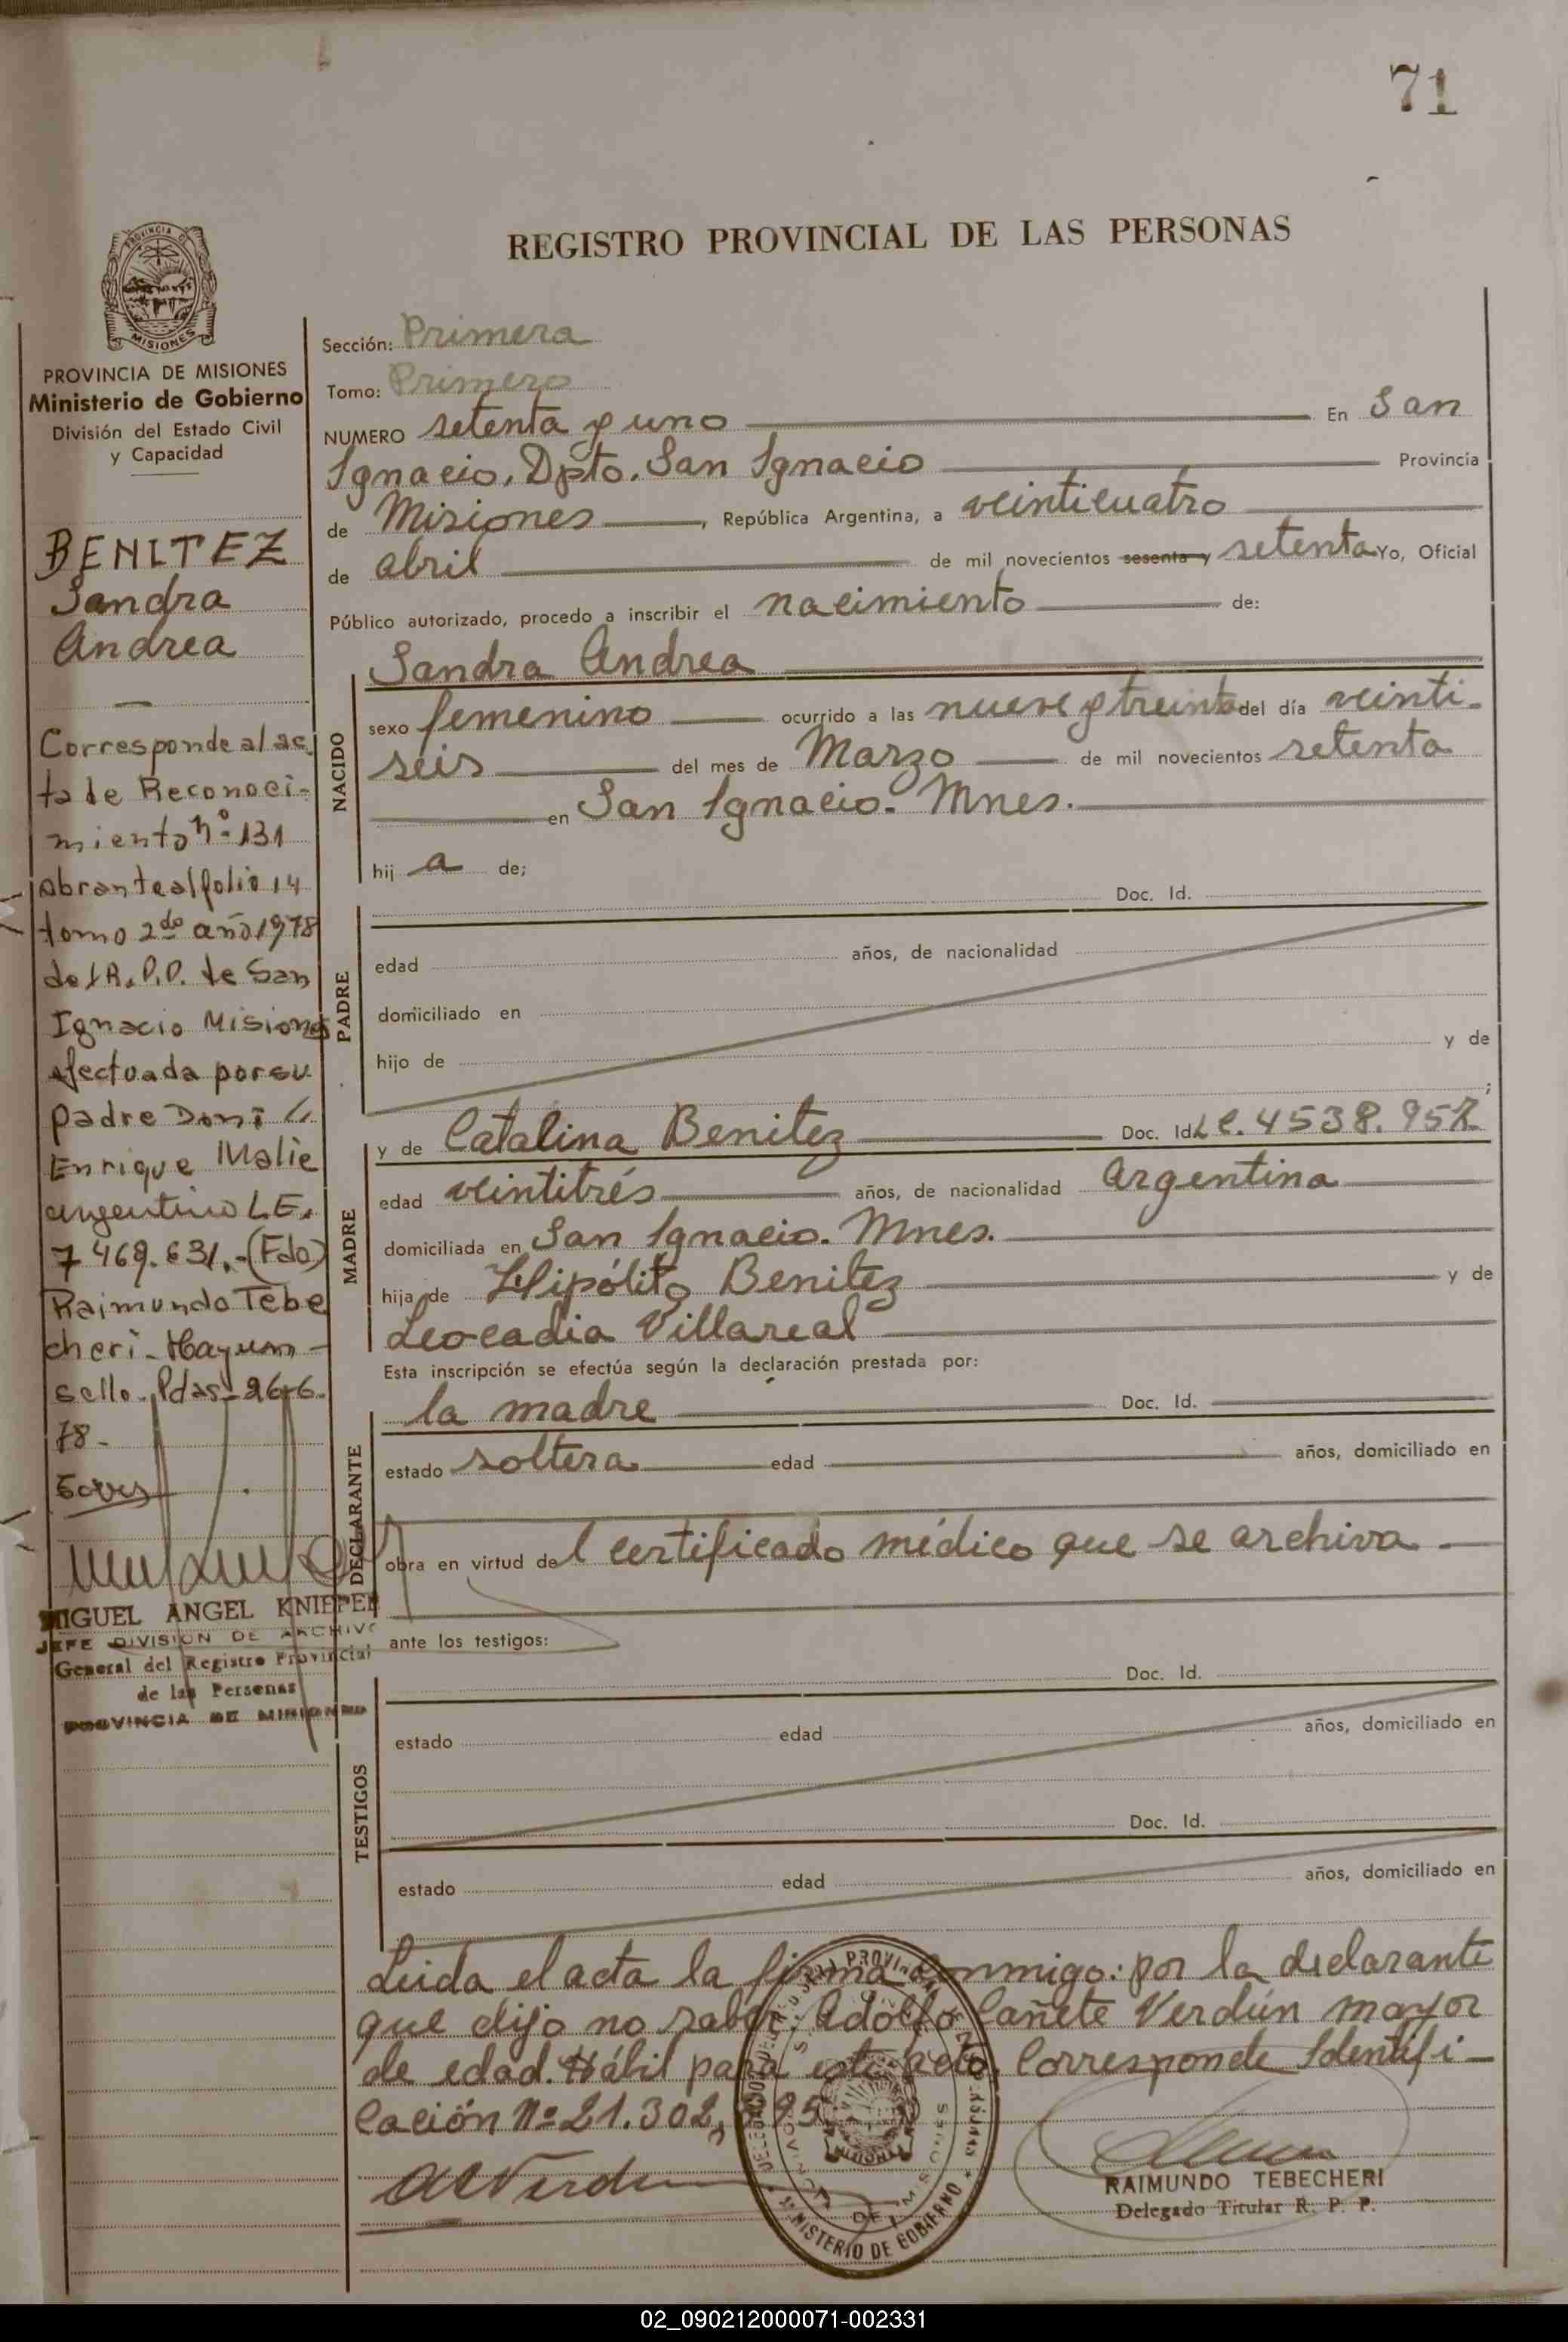 71
REGISTRO PROVINCIAL DE LAS PERSONAS
PROVINCIA DE
MISIONES
PROVINCIA DE MISIONES
Ministerio de Gobierno
División del Estado Civil
y Capacidad
BENITEZ
Sandra
Andrea
Corresponde al ac
ta de Reconoci-
miento nº 131
obrante al folio 14
tomo 2do año 1978
del R.P.P. de San
Ignacio Misiones
efectuada por su
padre Don
Enrique Malie
argentino L.E.
7 469.631.-(Fdo)
Raimundo Tebe
cheri - Hay un -
sello - Pdas - 26-6-
78-
MIGUEL ANGEL KNIEPER
JEFE DIVISION DE ARCHIVO
General del Registro Provincial
de las Personas
PROVINCIA DE MISIONES
Sección: Primera
Tomo: Primero
NUMERO setenta y uno En San
Ignacio, Dpto. San Ignacio Provincia
de Misiones, República Argentina, a veinticuatro
de abril de mil novecientos sesenta y setenta Yo, Oficial
Público autorizado, procedo a inscribir el nacimiento de:
NACIDO
Sandra Andrea
sexo femenino ocurrido a las nueve y treinta del día veinti-
seis del mes de Marzo de mil novecientos setenta
en San Ignacio. Mnes.
hij a de;
PADRE
Doc. Id.
edad años, de nacionalidad
domiciliado en
hijo de y de
;
MADRE
y de Catalina Benitez Doc. Id. L.C. 4538.957
edad veintitrés años, de nacionalidad Argentina
domiciliada en San Ignacio. Mnes.
hija de Hipólito Benitez y de
Leocadia Villareal
Esta inscripción se efectúa según la declaración prestada por:
DECLARANTE
la madre Doc. Id.
estado soltera edad años, domiciliado en
obra en virtud del certificado médico que se archiva
ante los testigos:
TESTIGOS
Doc. Id.
estado edad años, domiciliado en
Doc. Id.
estado edad años, domiciliado en
Leida el acta la firma conmigo: por la declarante
que dijo no saber: Adolfo Cañete Verdún mayor
de edad. Hábil para este acto. Corresponde Identifi-
cación Nº 21.302.
MINISTERIO DE GOBIERNO
RAIMUNDO TEBECHERI
Delegado Titular R. P. P.
02_090212000071-002331